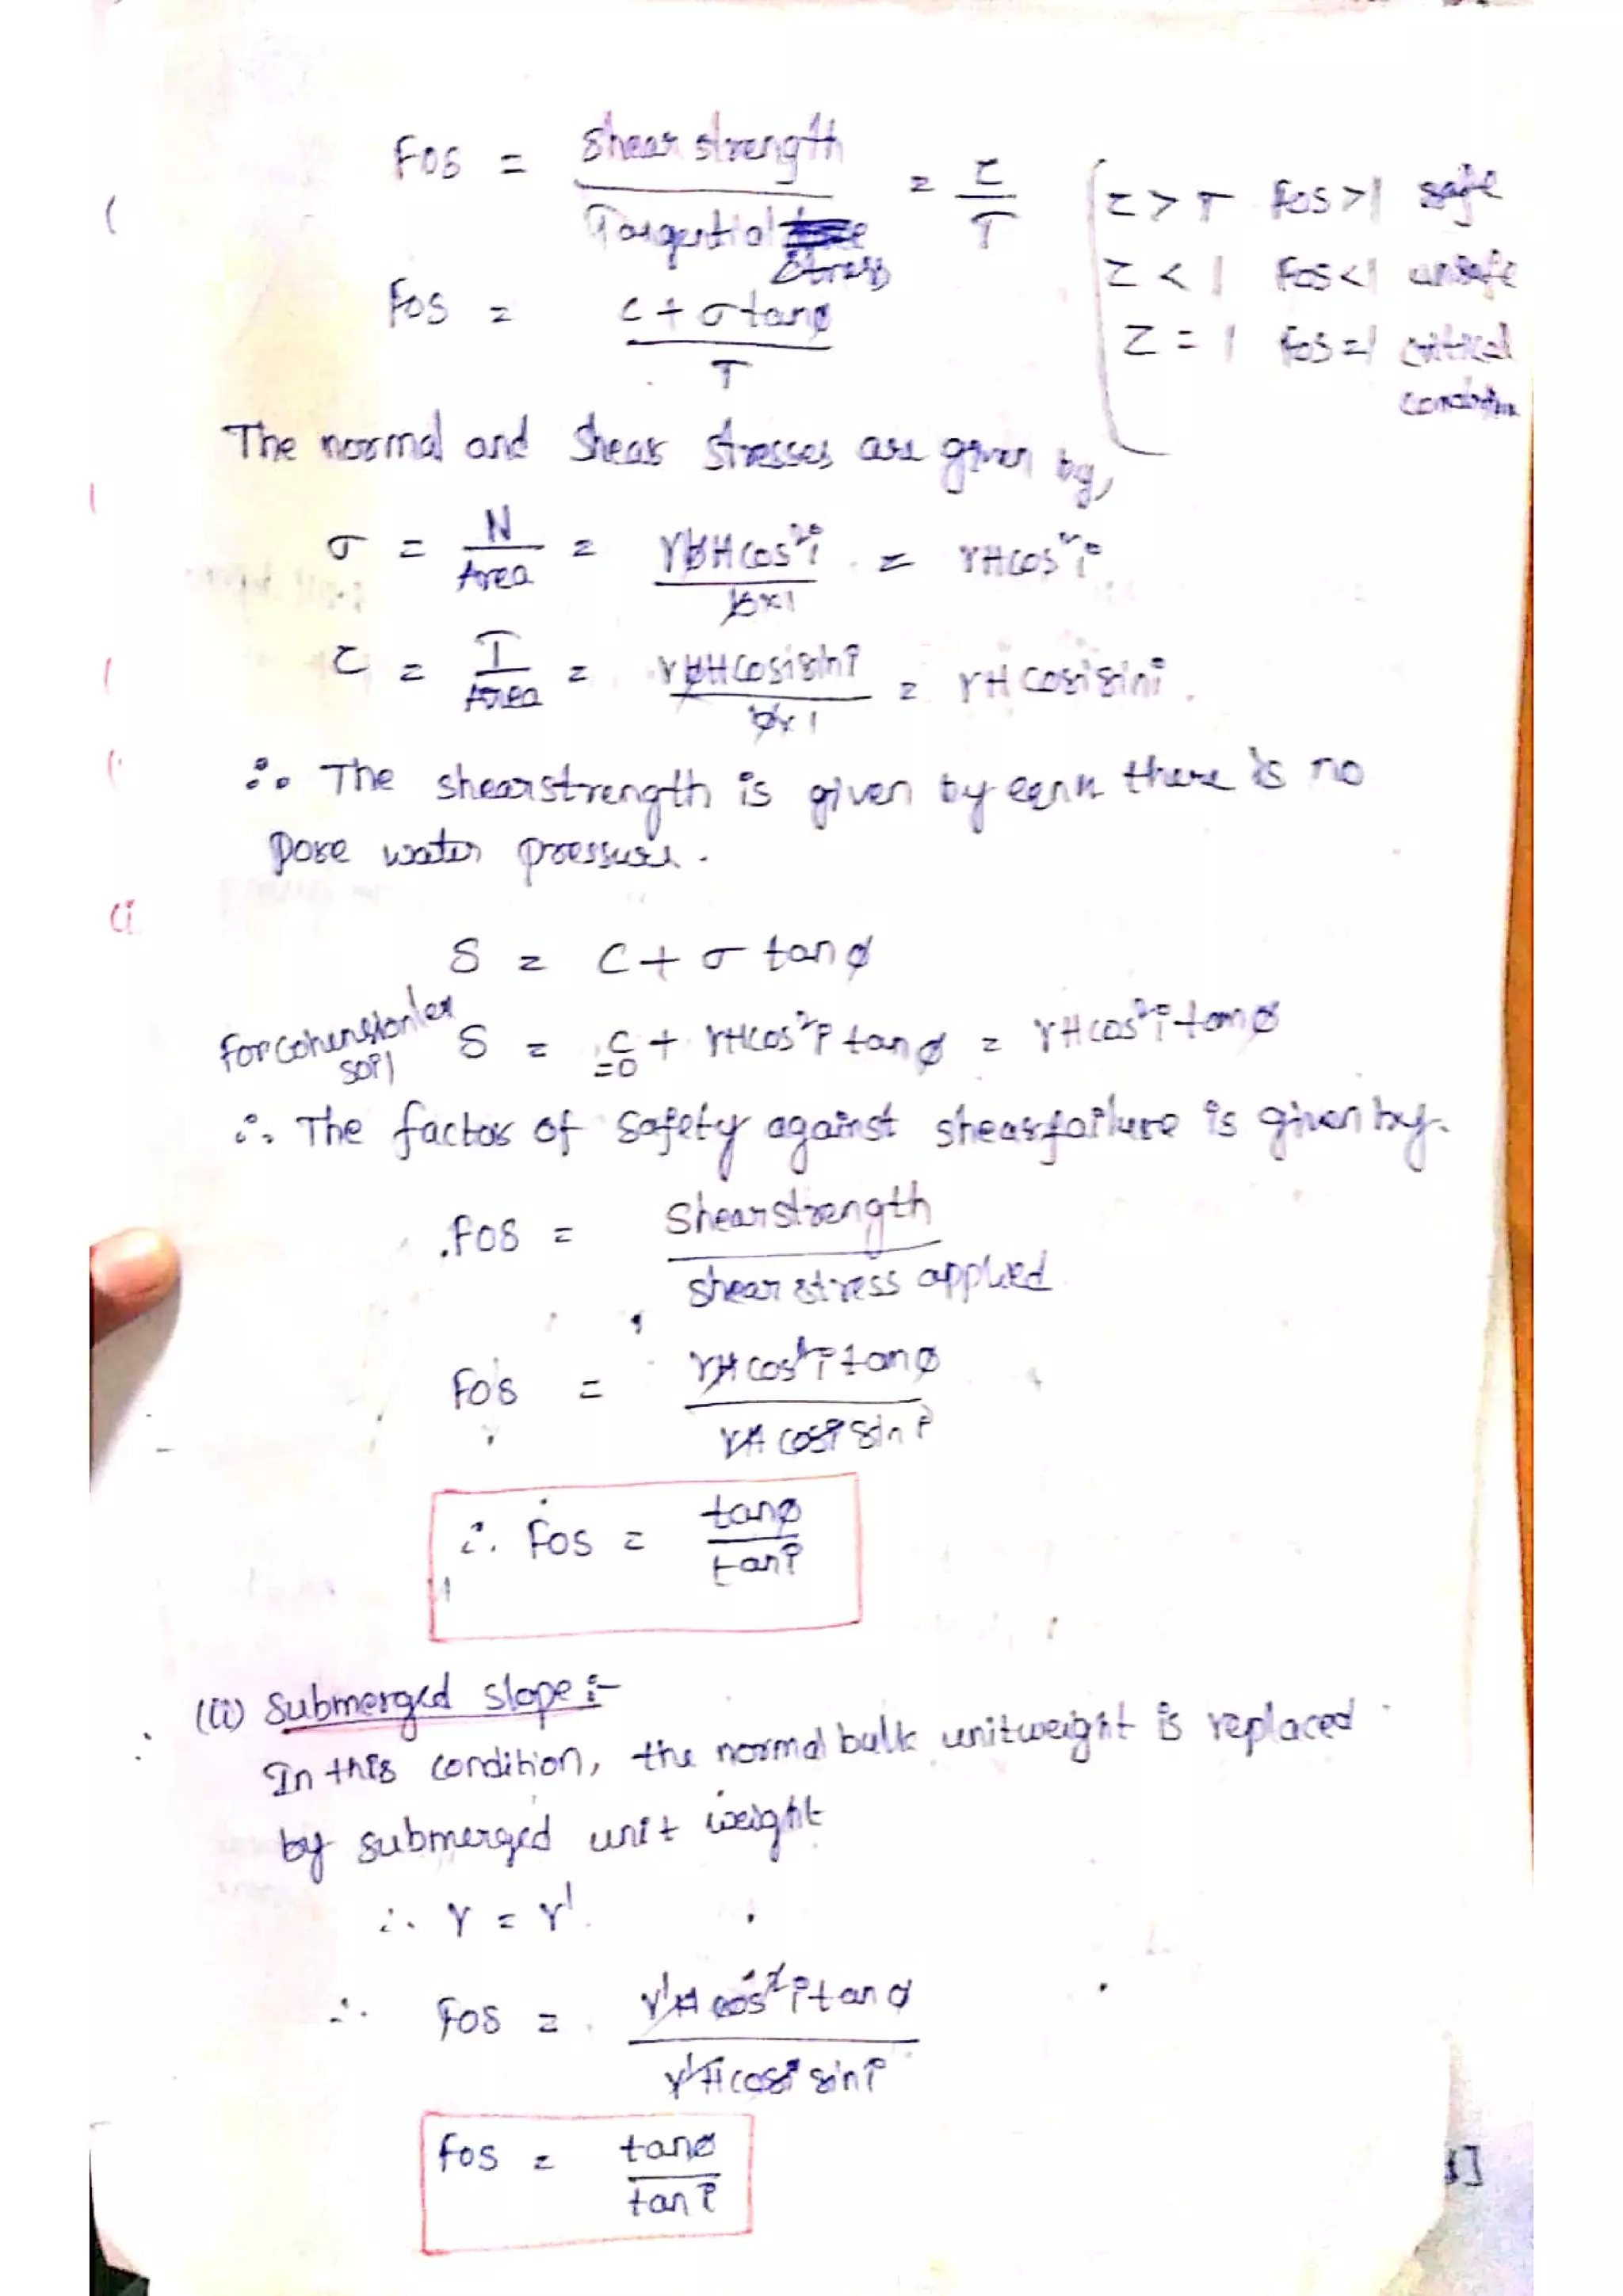 FOS = Shear strength / Tangential stress = τ / T
τ > T FOS > 1 safe
τ < 1 FOS < 1 unsafe
τ = 1 FOS = 1 critical condition
FOS = c + σ tanø / T
The normal and Shear stresses are given by,
σ = N / Area = γbHcos²i / b×1 = γHcos²i
τ = T / Area = γbHcosisini / b×1 = γH cosisini.
∴ The shearstrength is given by eqn there is no
pore water pressure.
S = C + σ tanø
S = C =0 + γHcos²i tanø = γHcos²i tanø
soil
∴ The factor of safety against shearfailure is given by.
FOS = Shearstrength / shear stress applied
FOS = γH cos²i tanø / γH cosi sin i
∴ FOS = tanø / tani
(ii) Submerged slope :-
In this condition, the normal bulk unitweight is replaced
by submerged unit weight
∴ γ = γ'
∴ FOS = γ'H cos²i tanø / γ'H cosi sini
FOS = tanø / tan i